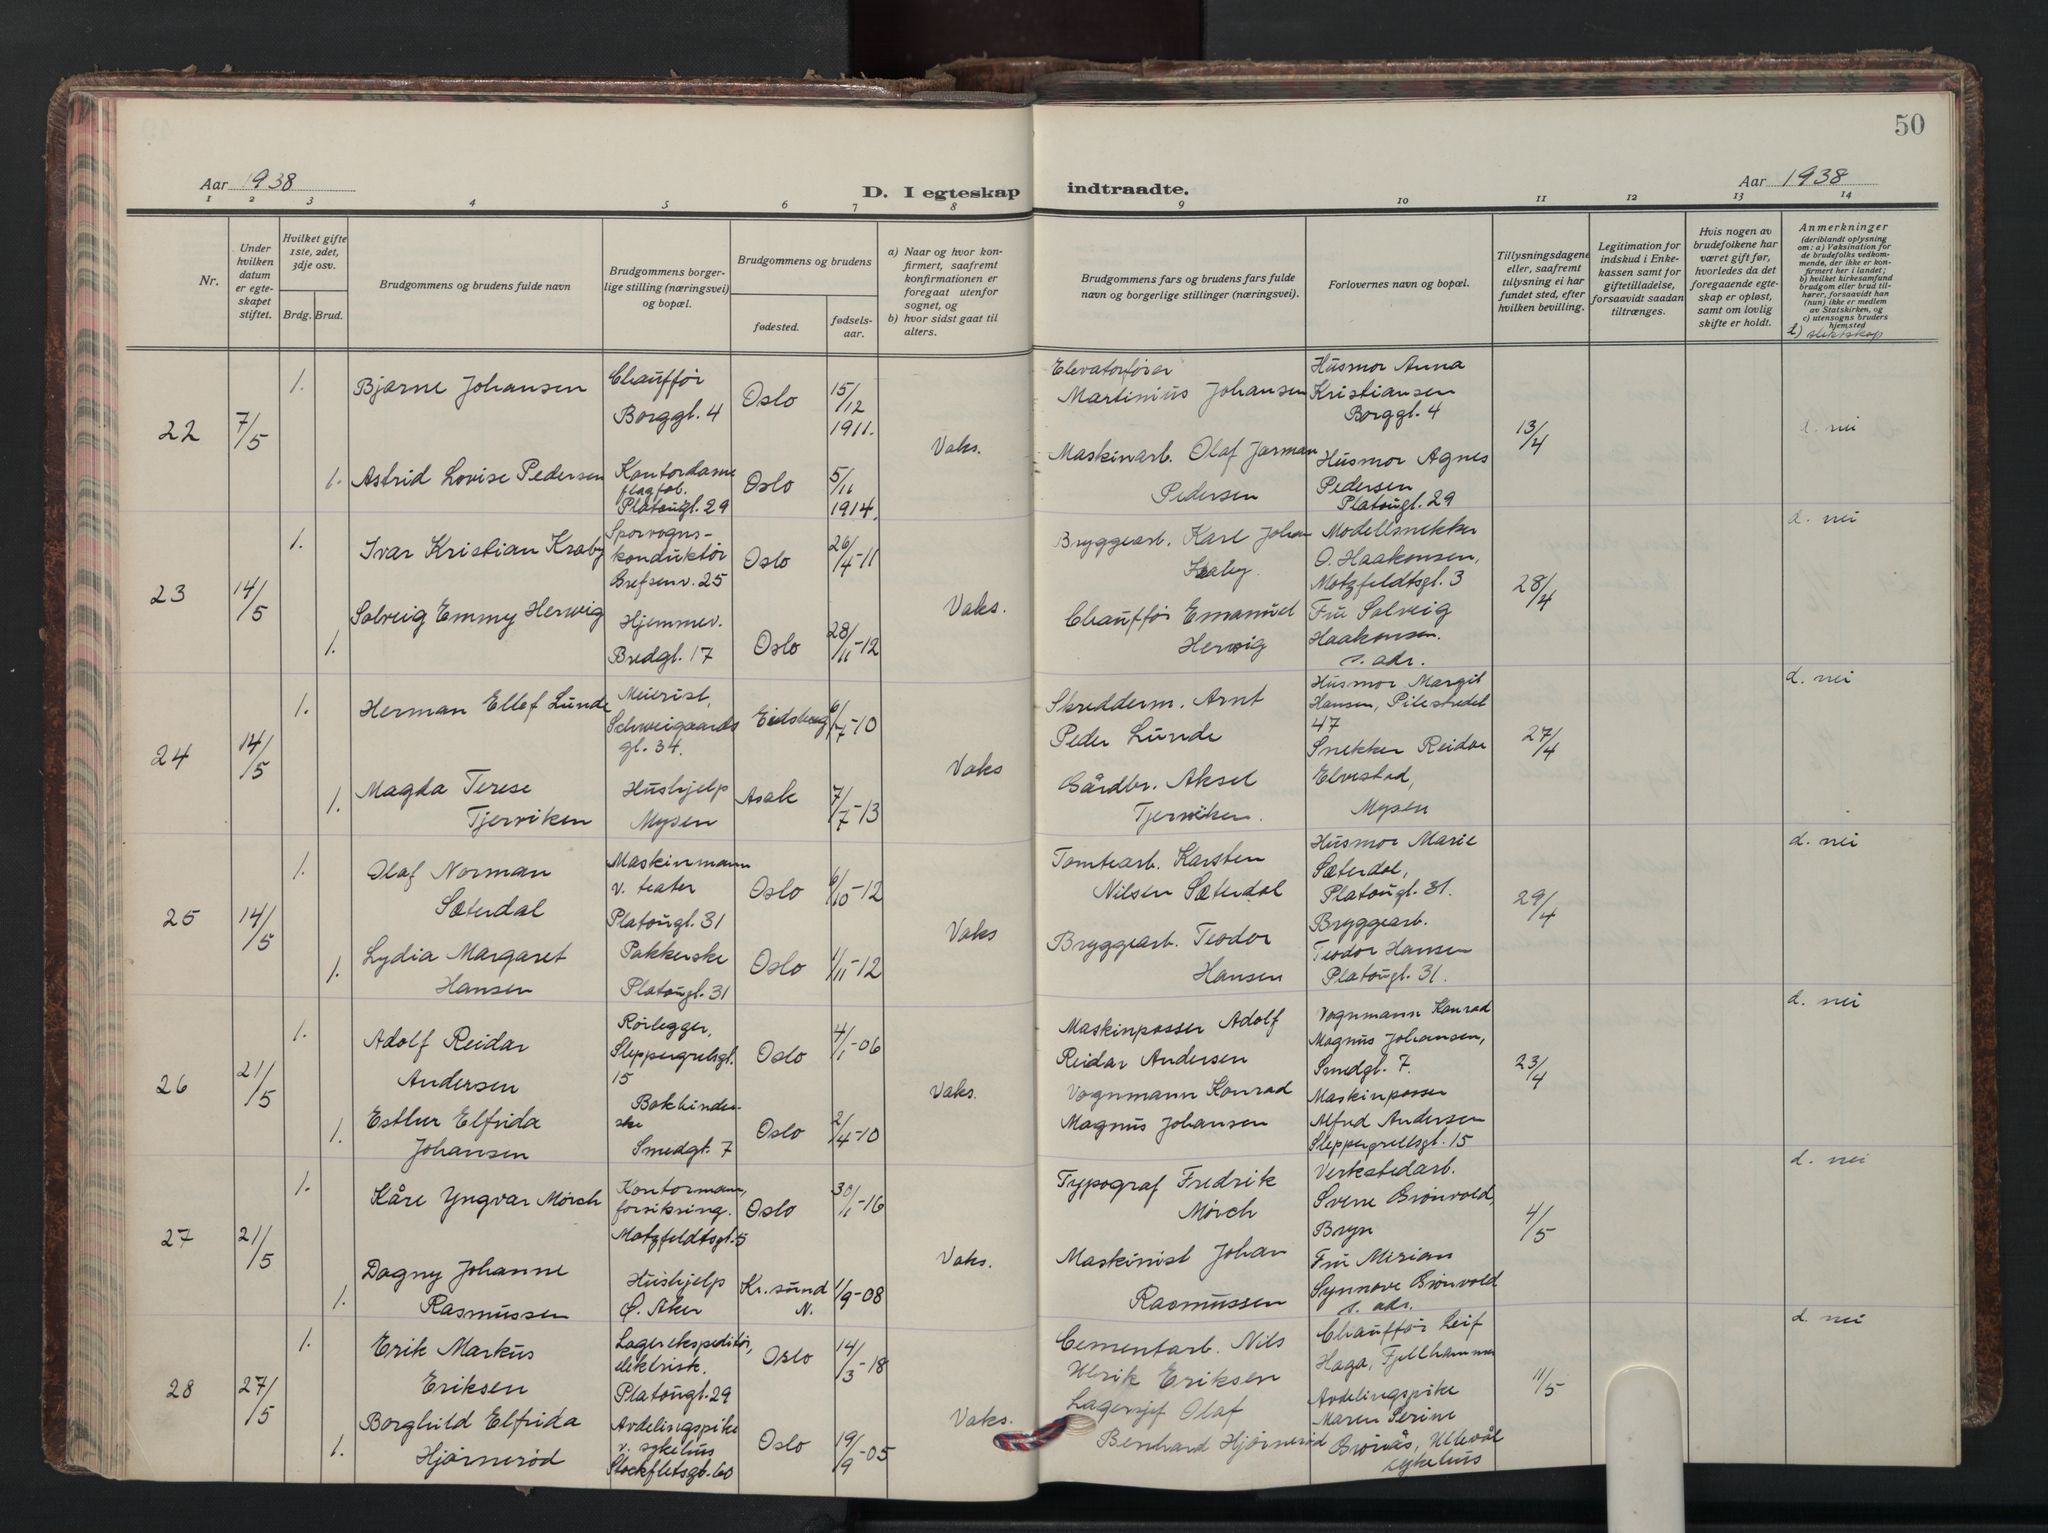 50
Aar 1938
D. I egteskap indtraadte.
Aar 1938
1 2 3 4 5 6 7 8 9 10 11 12 13 14
Nr.
Under hvilken datum er egteskapet stiftet.
Hvilket gifte 1ste, 2det, 3dje osv.
Brdg. Brud.
Brudgommens og brudens fulde navn
Brudgommens borgerlige stilling (næringsvei) og bopæl.
Brudgommens og brudens
fødested.
fødselsaar.
a) Naar og hvor konfirmert, saafremt konfirmationen er foregaat utenfor sognet, og
b) hvor sidst gaat til alters.
Brudgommens fars og brudens fars fulde navn og borgerlige stillinger (næringsvei).
Forlovernes navn og bopæl.
Tillysningsdagene eller, saafremt tillysning ei har fundet sted, efter hvilken bevilling.
Legitimation for indskud i Enkekassen samt for giftetilladelse, forsaavidt saadan tiltrænges.
Hvis nogen av brudefolkene har været gift før, hvorledes da det foregaaende egteskap er opløst, samt om lovlig skifte er holdt.
Anmerkninger
(deriblandt oplysning om: a) Vaksination for de brudefolks vedkommende, der ikke er konfirmert her i landet; b) hvilket kirkesamfund brudgom eller brud tilhører, forsaavidt han (hun) ikke er medlem av Statskirken, og c) utensogns bruders hjemsted
d) slektskap
22
7/5
1.
Bjarne Johansen
Chauffør
Borggt. 4
Oslo
15/12 1911.
Vaks.
Elevatorfører
Martinius Johansen
Husmor Anna
Kristiansen
Borggt. 4
13/4
d. nei
1.
Astrid Lovise Pedersen
Kontordame
Platougt. 29
Oslo
5/11 1914.
Maskinarb. Olaf Jarman
Pedersen
Husmor Agnes
Pedersen
Platougt. 29
23
14/5
1.
Ivar Kristian Kraby
Sporvogns-
konduktør
Grefsenv. 25
Oslo
26/4-11
Vaks.
Bryggearb. Karl Johan
Kraby.
Modellsnekker
O. Haakonsen,
Motzfeldtsgt. 3
28/4
d. nei
1.
Solveig Emmy Herwig
Hjemmev.
Bredgt. 17
Oslo
28/11-12
Chauffør Emanuel
Herwig
Fru Solveig
Haakonsen.
s. adr.
24
14/5
1.
Herman Ellef Lunde
Meierist,
Schweigaards
gt. 34.
Eidsberg
6/7-10
Vaks
Skredderm. Arnt
Peder Lunde
Husmor Margit
Hansen, Pilestredet
47
27/4
d. nei
1.
Magda Terese
Tjerviken
Hushjelp
Mysen
Asak
7/7-13
Gårdbr. Aksel
Tjerviken.
Snekker Reidar
Elvestad,
Mysen
25
14/5
1.
Olaf Norman
Sæterdal
Maskinmann
v. teater
Platougt. 31
Oslo
6/10-12
Vaks
Tomtearb. Karsten
Nilsen Sæterdal
Husmor Marie
Sæterdal,
Platougt. 31.
29/4
d. nei
1.
Lydia Margaret
Hansen
Pakkerske
Platougt. 31
Oslo
1/11-12
Bryggearb. Teodor
Hansen
Bryggearb.
Teodor Hansen
Platougt. 31.
26
21/5
1.
Adolf Reidar
Andersen
Rørlegger,
Sleppegrelsgt.
15
Oslo
4/1-06
Vaks.
Maskinpasser Adolf
Reidar Andersen
Vognmann Konrad
Magnus Johansen,
Smedgt. 7.
23/4
d. nei
1.
Esther Elfrida
Johansen
Bokbinder-
ske
Smedgt. 7
Oslo
2/4-10
Vognmann Konrad
Magnus Johansen
Maskinpasser
Alfred Andersen
Sleppegrellsgt. 15
27
21/5
1.
Kåre Yngvar Mørch
Kontormann,
forsikring.
Motzfeldtsgt. 5
Oslo
30/1-16
Vaks.
Typograf Fredrik
Mørch
Verkstedarb.
Svere Grønvold,
Bryn
4/5
d. nei
1.
Dagny Johanne
Rasmussen
Hushjelp
Ø. Aker
Kr.sund
N.
1/9-08
Maskinist Johan
Rasmussen
Fru Mirian
Synnøve Grønvold
s. adr.
28
27/5
1.
Erik Markus
Eriksen
Lagerekspeditør,
elektrisk.
Platougt. 29
Oslo
14/3-18
Vaks.
Cementarb. Nils
Ulrik Eriksen
Chauffør Leif
Haga, Fjellhammer
11/5
d. nei
1.
Borghild Elfrida
Hjørnerød
Avdelingspike
v. sykehus
Stockfletsgt. 60
Oslo
19/9-05
Lagersjef Olaf
Bernhard Hjørnerød
Avdelingspike
Maren Serine
Grønås, Ullevål
sykehus